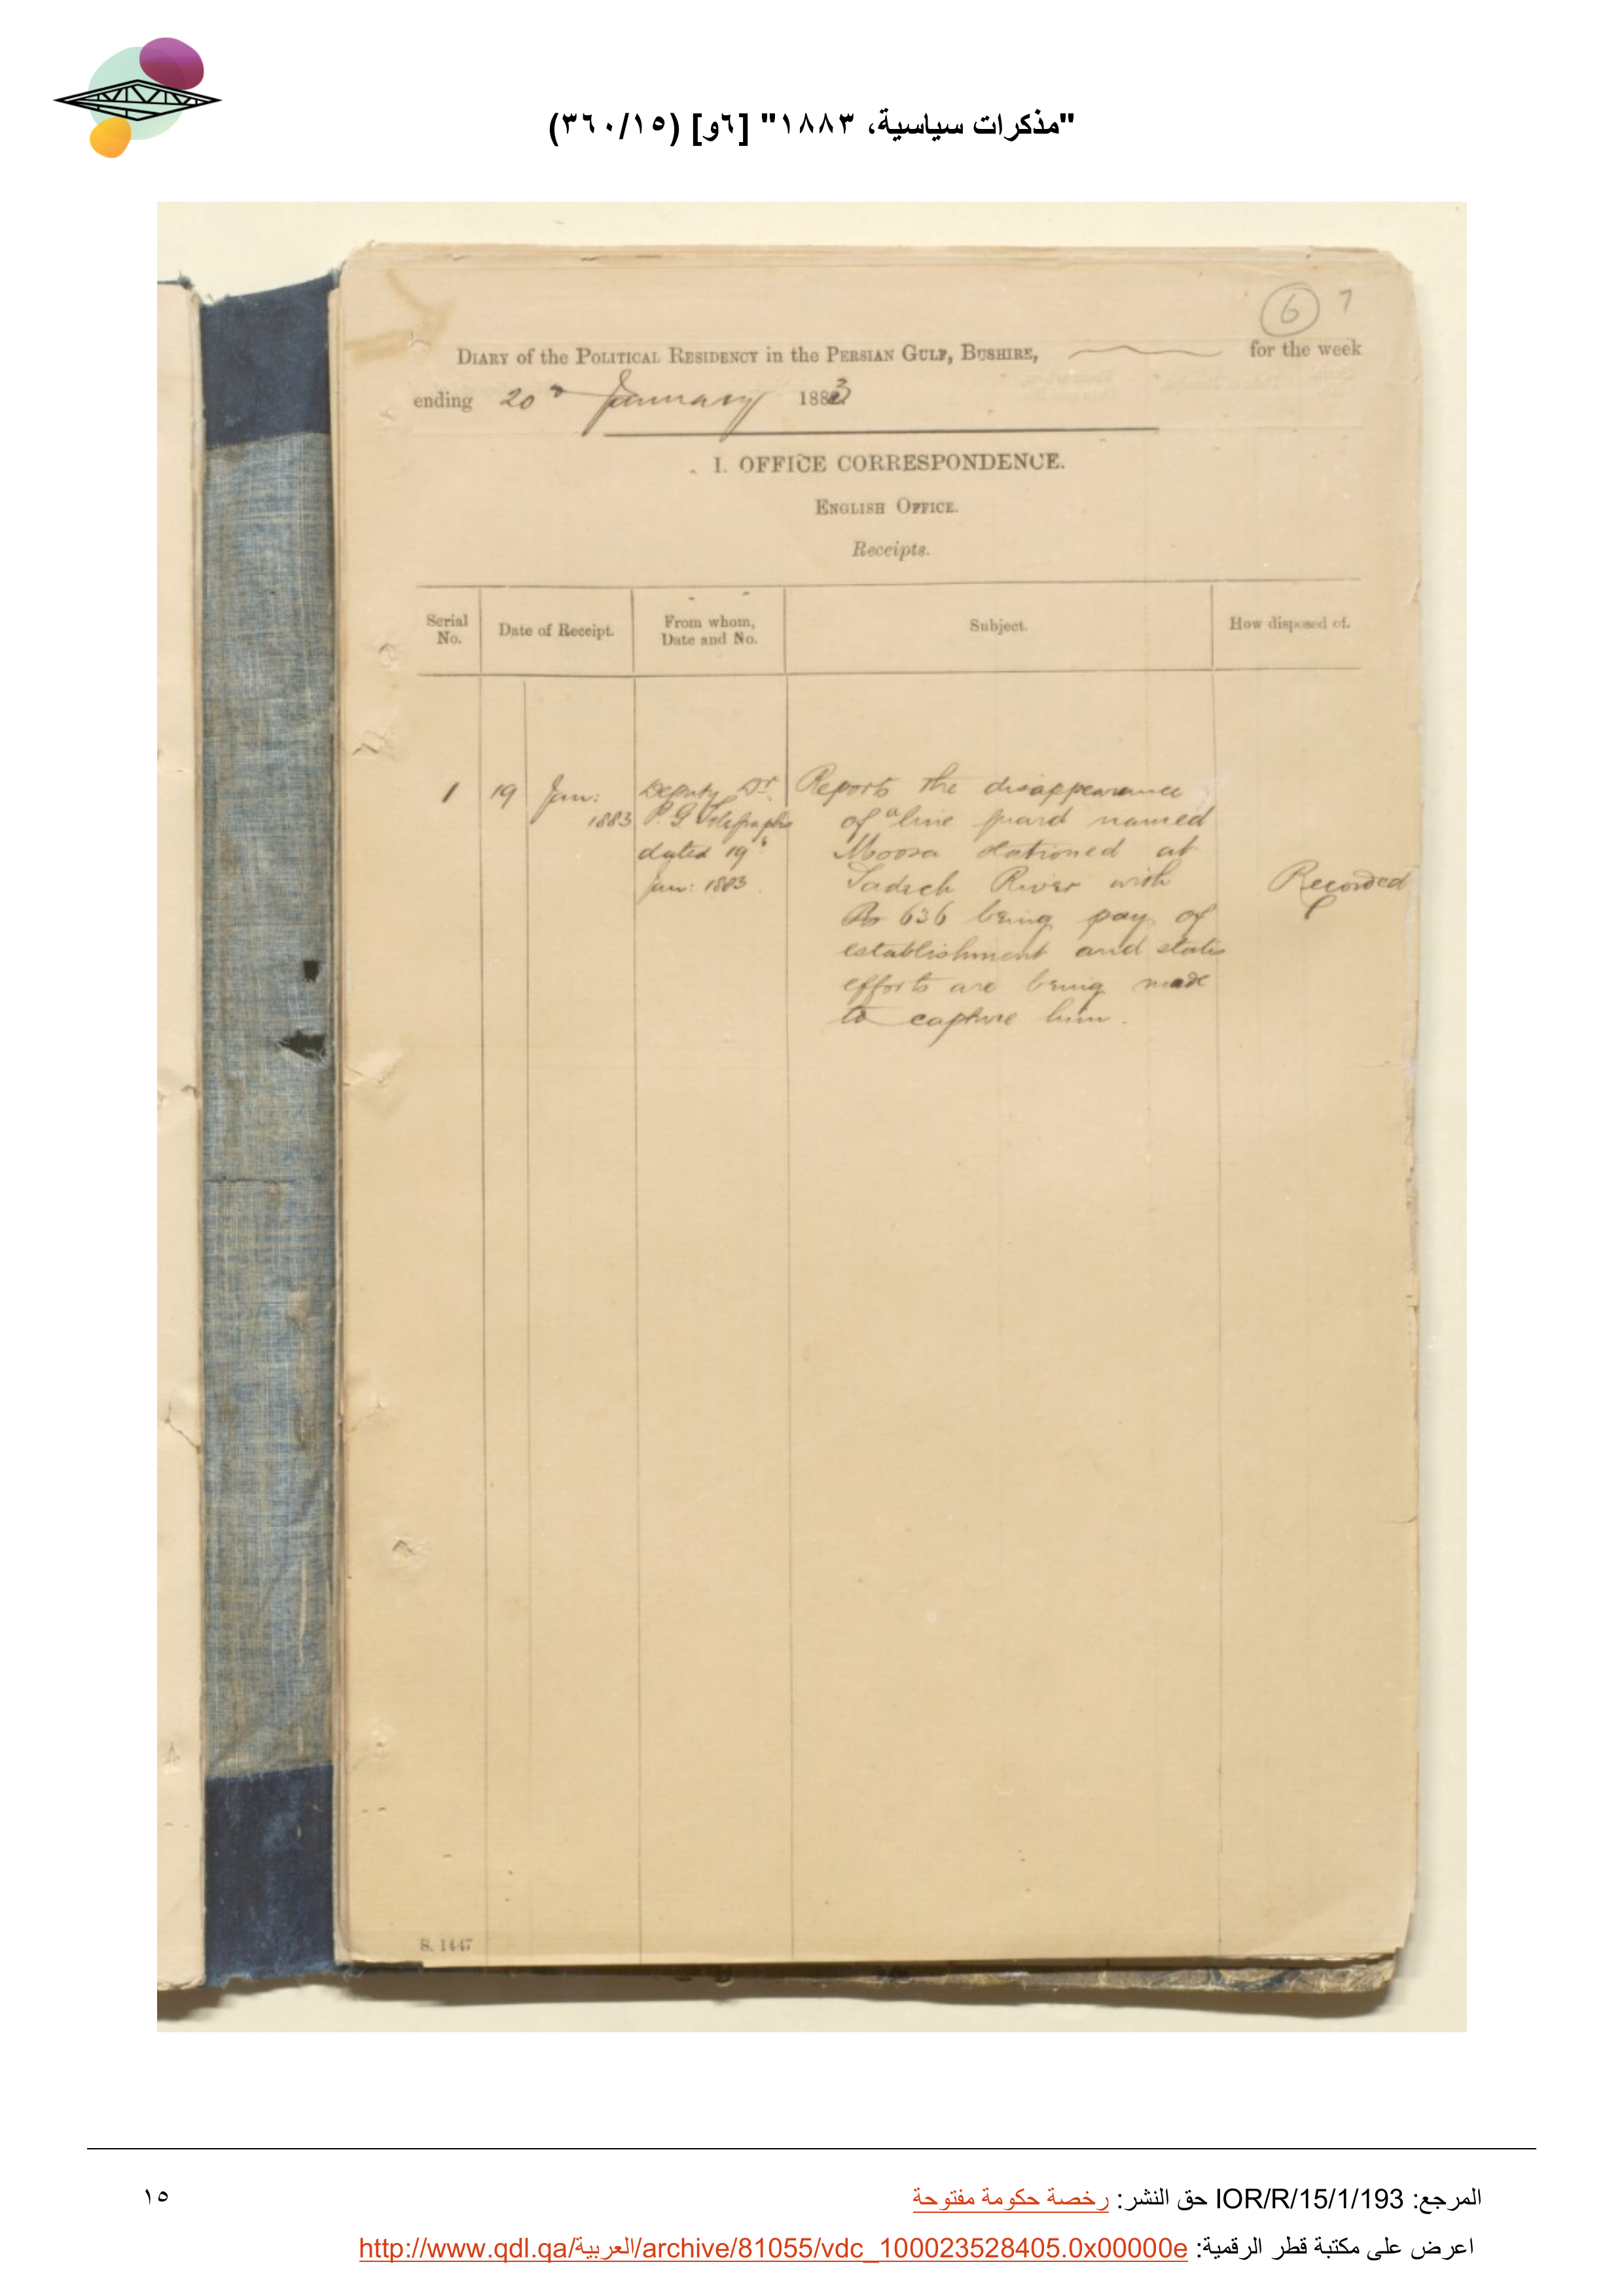 "مذكرات سياسية، ١٨٨٣" [٦و] (٣٦٠/١٥)
6 7
DIARY of the POLITICAL RESIDENCY in the PERSIAN GULF, BUSHIRE, for the week
ending 20th January 1883
I. OFFICE CORRESPONDENCE.
ENGLISH OFFICE.
Receipts.
Serial No.
Date of Receipt.
From whom, Date and No.
Subject.
How disposed of.
1
19 Jan:
1883
Deputy Dr.
P. G. Telegraphs
dated 19th
Jan: 1883.
Reports the disappearance
of a line guard named
Moosa stationed at
Sadich River with
Rs 636 being pay of
establishment and states
efforts are being made
to capture him.
Recorded
S. 1447
المرجع: IOR/R/15/1/193 حق النشر: رخصة حكومة مفتوحة
١٥
اعرض على مكتبة قطر الرقمية: http://www.qdl.qa/العربية/archive/81055/vdc_100023528405.0x00000e